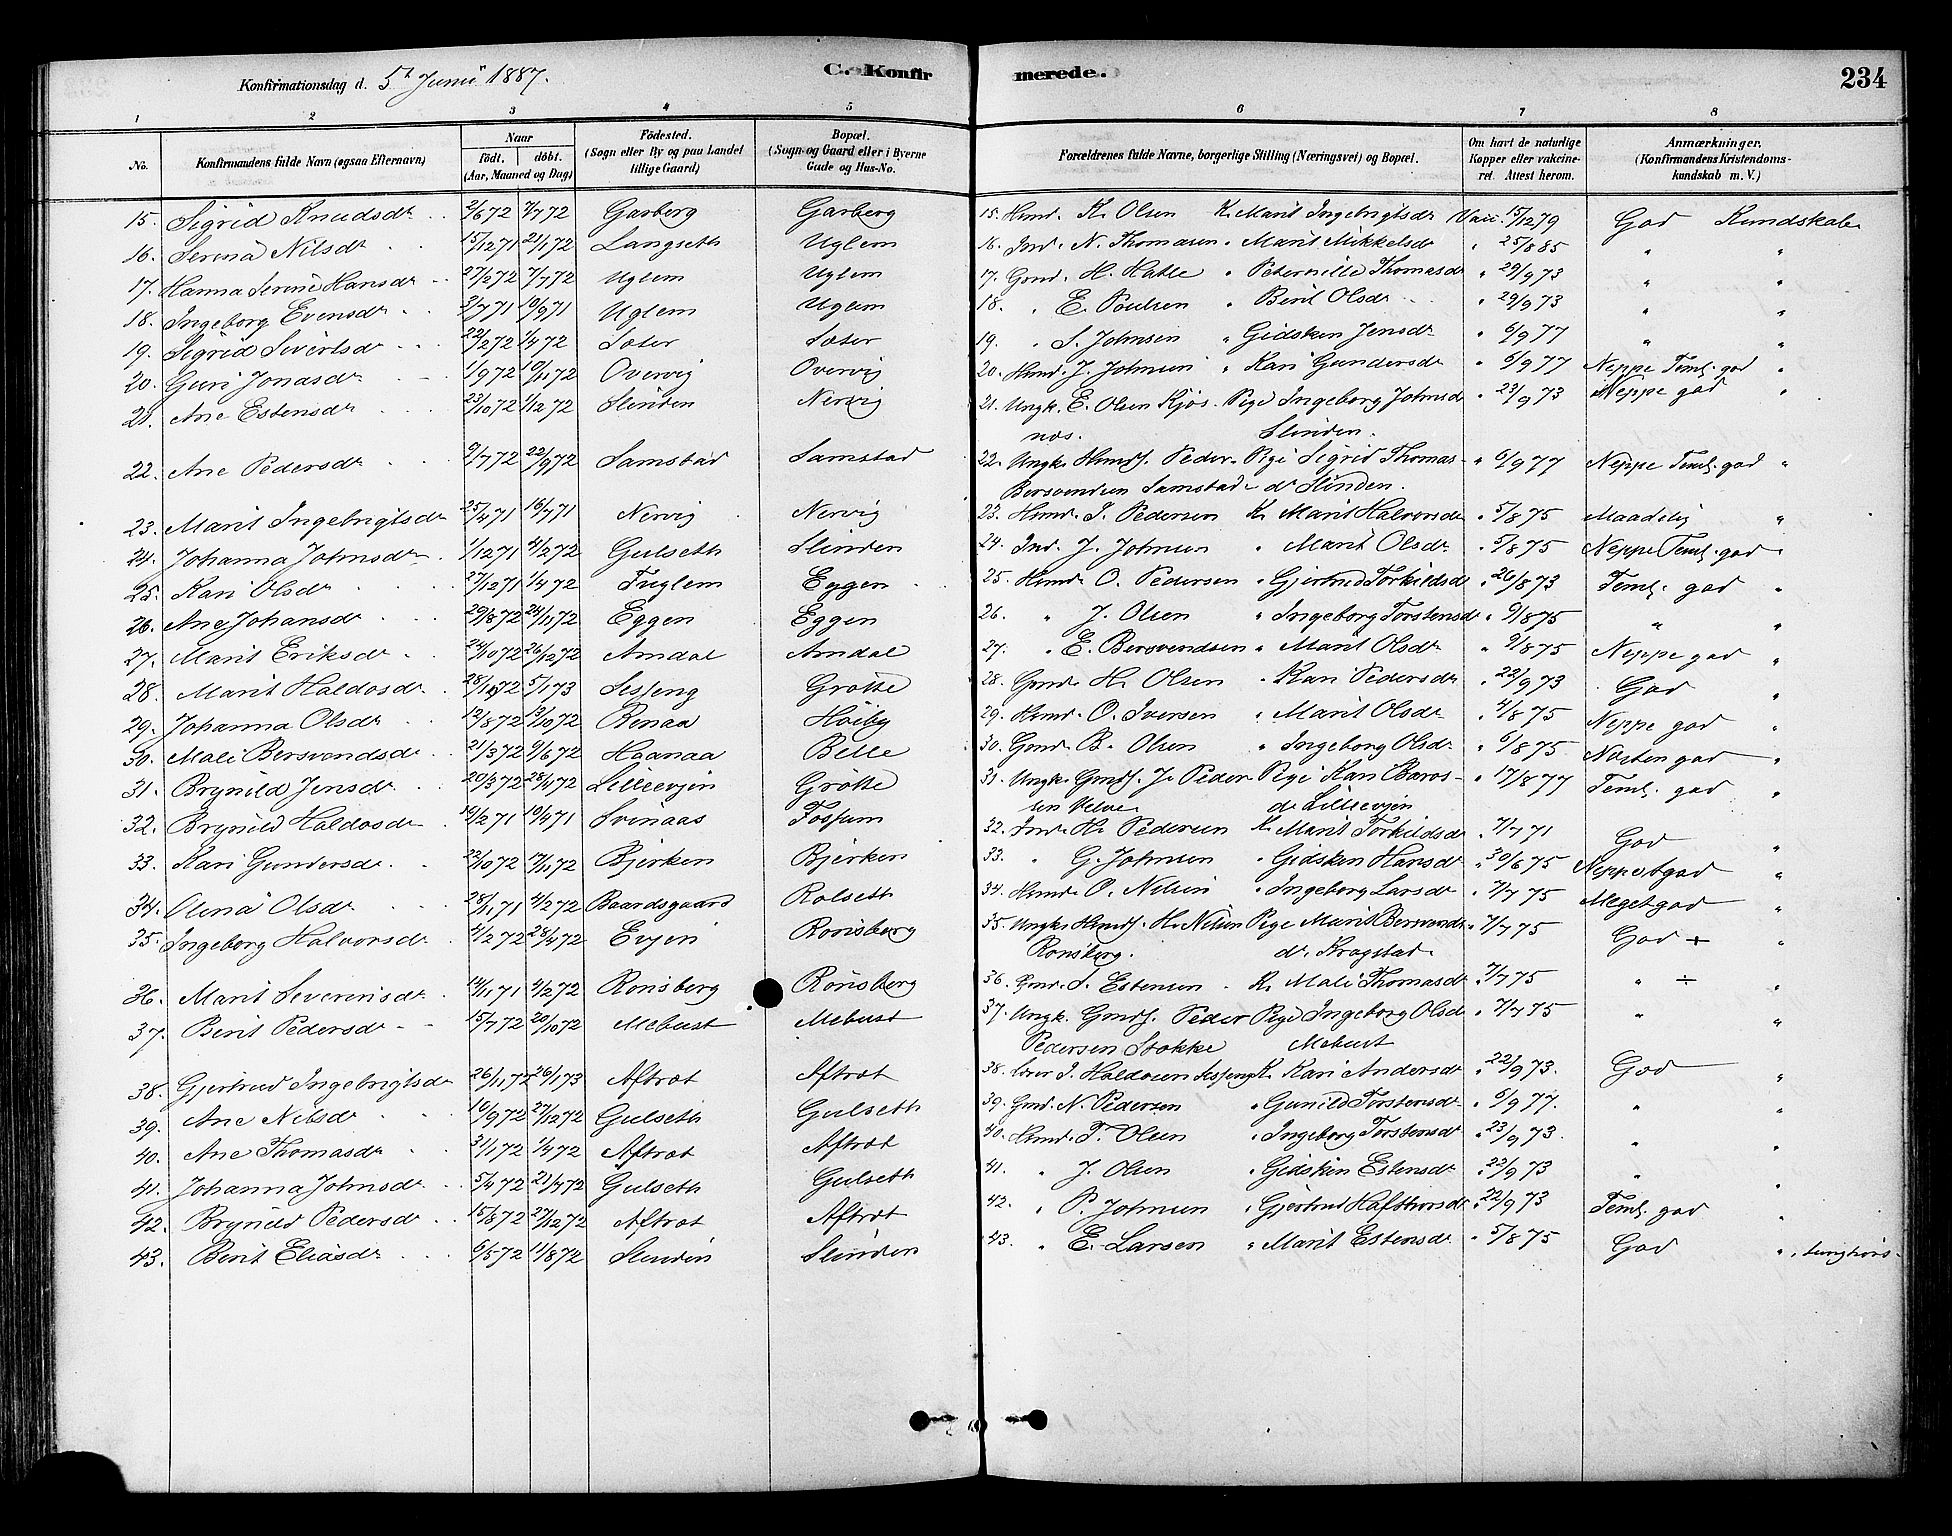 Konfirmationsdag d. 5t Juni 1887. C. Konfir merede. 234
1 2 3 4 5 6 7 8
No. Konfirmandens fulde Navn (ogsaa Efternavn) Naar födt. döbt. (Aar, Maaned og Dag) Födested. (Sogn eller By og paa Landet tillige Gaard) Bopæl. (Sogn og Gaard eller i Byerne Gade og Hus-No. Forældrenes fulde Navne, borgerlige Stilling (Næringsvei) og Bopæl. Om havt de naturlige Kopper eller vakcineret. Attest herom. Anmærkninger. (Konfirmandens Kristendomskundskab m. V.)
15. Sigrid Knudsdr 2/6 72 7/7 72 Garberg Garberg 15. Hmd. K. Olsen K. Marit Ingebrigtsdr Vacc. 15/12 79 God Kundskab
16. Serena Nilsdr 15/12 71 21/1 72 Langseth Uglem 16. Ind. N. Thomasen " Marit Mikkelsdr " 25/8 85 " "
17. Hanna Serine Hansdr 27/2 72 7/7 72 Uglem Uglem 17. Gmd. H. Halle " Peternille Thomasdr " 29/9 73 " "
18. Ingeborg Evensdr 3/7 71 10/9 71 Uglem Uglem 18. " E. Poulsen " Berit Olsdr " 29/9 73 " "
19. Sigrid Sivertsdr 22/2 72 1/4 72 Sæter Sæter 19. " S. Johnsen " Gidsken Jensdr " 6/9 77 " "
20. Guri Jonasdr 1/9 72 10/11 72 Overvig Overvig 20. Hmd. J. Johnsen " Kari Gundersdr " 6/9 77 Neppe Teml. god "
21. Ane Estensdr 23/10 72 1/12 72 Slinden Nervig 21. Ungk. E. Olsen Kjøs- Pige Ingeborg Johnsdr " 23/9 73 Neppe god "
næs. Slinden.
22. Ane Pedersdr 9/7 72 22/9 72 Samstad Samstad 22. Ungk. Hmdf. Peder Pige Sigrid Thomas- " 6/9 77 Neppe Teml. god "
Bersvendsen Samstad dr Slinden.
23. Marit Ingebrigtsdr 25/4 71 16/7 71 Nervig Nervig 23. Hmd. I. Pedersen K. Marit Halvorsdr " 5/8 75 Maadelig "
24. Johanna Johnsdr 1/12 71 4/2 72 Gulseth Slinden 24. Ind. J. Johnsen " Marit Olsdr " 5/8 75 Neppe Teml. god "
25. Kari Olsdr 27/12 71 1/4 72 Fuglem Eggen 25. Hmd. O. Pedersen " Gjertrud Torkildsdr " 26/8 73 Teml. god "
26. Ane Johansdr 29/8 72 24/11 72 Eggen Eggen 26. " J. Olsen " Ingeborg Torstensdr " 9/8 75 " "
27. Marit Eriksdr 24/10 72 26/12 72 Amdal Amdal 27. " E. Bersvendsen " Marit Olsdr " 9/8 75 Neppe god "
28. Marit Haldosdr 28/10 72 5/1 73 Sesseng Grøtte 28. Gmd. H. Olsen " Kari Pedersdr " 22/9 73 God "
29. Johanna Olsdr 12/8 72 13/10 72 Renaa Høiby 29. Hmd. O. Iversen " Marit Olsdr " 4/8 75 Neppe god "
30. Mali Bersvendsdr 21/3 72 9/6 72 Haanaa Belle 30. Gmd. B. Olsen " Ingeborg Olsdr " 6/8 75 Næsten god "
31. Brynild Jensdr 20/3 72 28/4 72 Lilleevjen Grøtte 31. Ungk. Gmdf. J. Peder Pige Kari Baros- " 17/8 77 Teml. god "
sen Velve dr Lilleevjen
32. Brynild Haldosdr 10/2 71 10/4 71 Svinaas Fossum 32. Ind. H. Pedersen K. Marit Torkildsdr " 7/7 71 God "
33. Kari Gundersdr 22/10 72 17/11 72 Bjerken Bjerken 33. " G. Johnsen " Gidsken Hansdr " 30/6 75 Neppe tgod "
34. Olena Olsdr 28/11 71 4/2 72 Baardsgaard Rolseth 34. Hmd. O. Nilsen " Ingeborg Larsdr " 7/7 75 Meget god "
35. Ingeborg Halvorsdr 4/2 72 28/4 72 Evjen Rønsberg 35. Ungk. Hmdf. H. Nilsen Pige Marit Bersvends " 7/7 75 God ÷ "
Rønsberg. dr Kragstad.
36. Marit Severinsdr 14/11 71 4/2 72 Rønsberg Rønsberg 36. Gmd. S. Estensen K. Mali Thomasdr " 7/7 75 " ÷ "
37. Berit Pedersdr 15/7 72 20/10 72 Mebust Mebust 37. Ungk. Gmdf. Peder Pige Ingeborg Olsdr " 7/7 75 " "
Pedersen Stokke Mebust
38. Gjertrud Ingebrigtsdr 26/11 72 26/1 73 Aftret Aftret 38. I. Haldosen Sesseng K. Kari Andersdr " 22/9 73. God "
39. Ane Nilsdr 16/9 72 27/12 72 Gulseth Gulseth 39. Gmd. N. Pedersen " Gunild Torstensdr " 6/9 77. " "
40. Ane Thomasdr 31/1 72 1/4 72 Aftret Aftret 40. Hmd. T. Olsen " Ingeborg Torstensdr " 23/9 73. " "
41. Johanna Johnsdr 5/4 72 21/4 72 Gulseth Gulseth 41. " J. Olsen " Gidsken Estensdr " 23/9 73 " "
42. Brynild Pedersdr 15/8 72 27/12 72 Aftret Aftret 42. " P. Johnsen " Gjertrud Hafthorsdr " 22/9 73 Teml. god "
43. Berit Eliasdr 6/5 72 11/8 72 Slinden Slinden 43. " E. Larsen " Marit Estensdr " 5/8 75 God ", tunghørt.